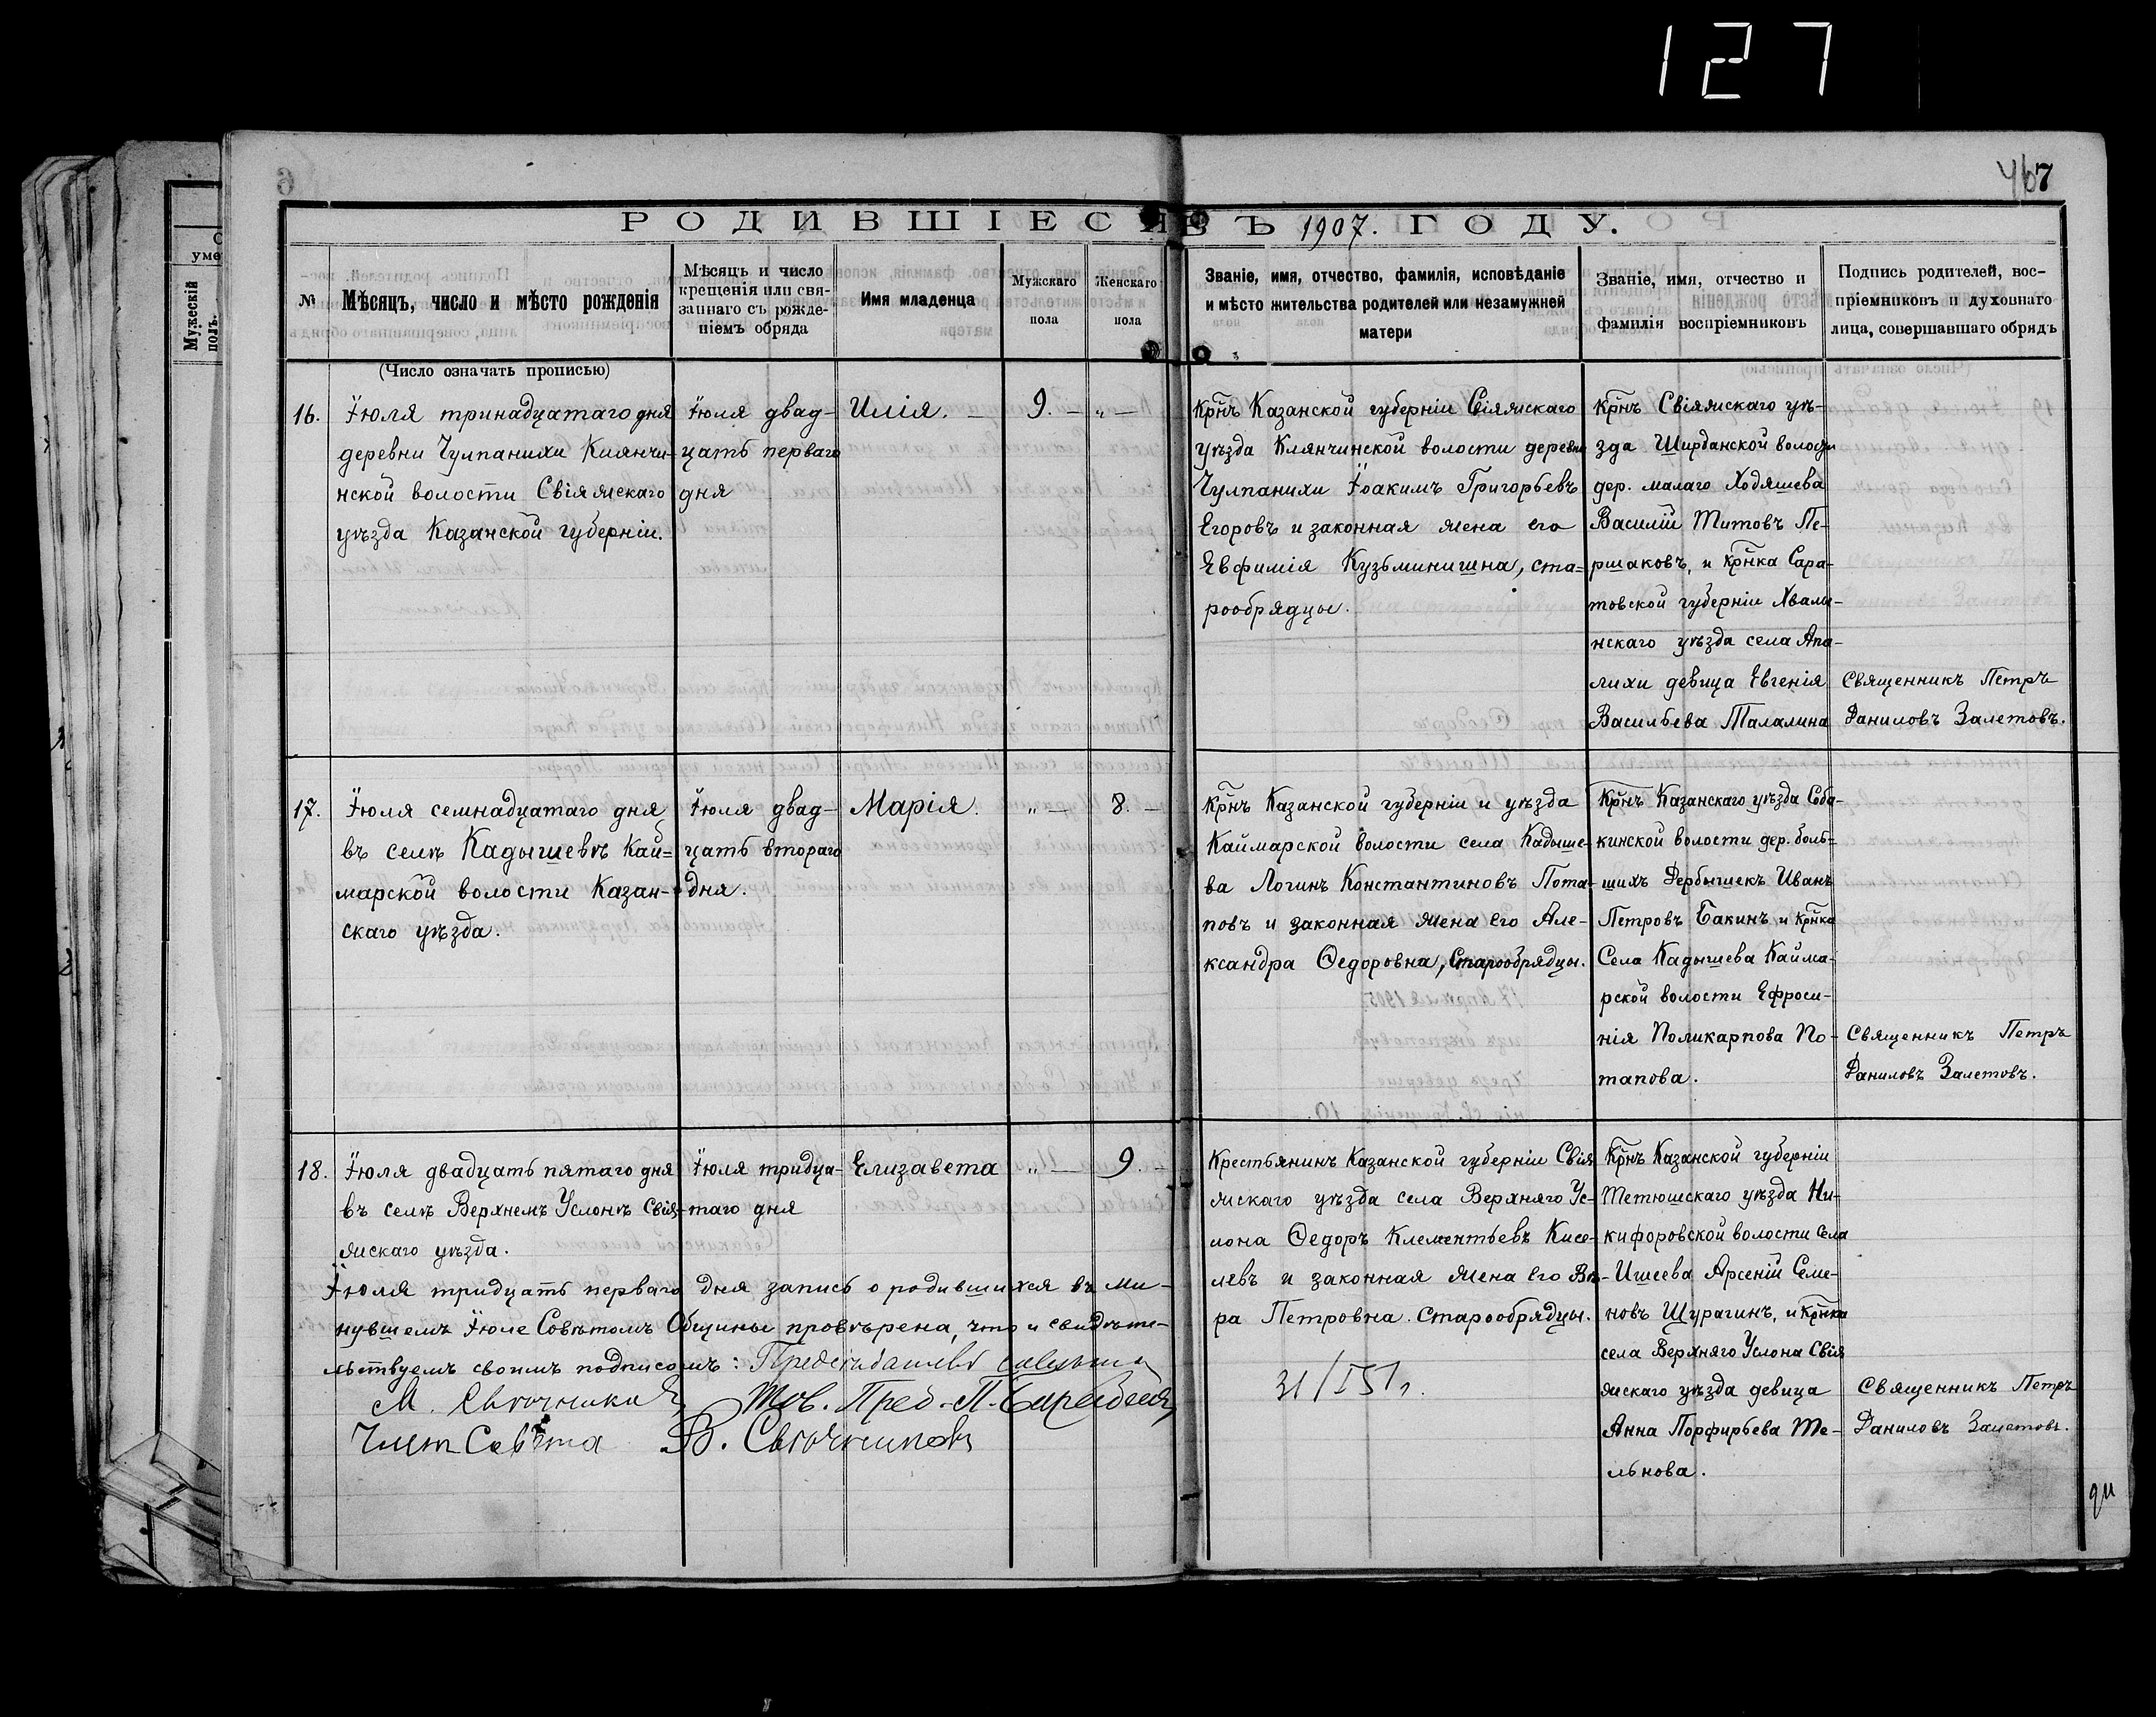 127
467
РОДИВШІЕСЯ ВЪ 1907. ГОДУ.
№
Мѣсяцъ, число и мѣсто рожденія
Мѣсяцъ и число
крещенія или свя-
заннаго съ рожде-
ніемъ обряда
Имя младенца
Мужскаго
пола
Женскаго
пола
Званіе, имя, отчество, фамилія, исповѣданіе
и мѣсто жительства родителей или незамужней
матери
Званіе, имя, отчество и
фамилія воспріемниковъ
Подпись родителей, вос-
пріемниковъ и духовнаго
лица, совершавшаго обрядъ
Мужескій
полъ.
(Число означать прописью)
16.
Іюля тринадцатаго дня
деревни Чулпанихи Клянчи-
нской волости Свіяжскаго
уѣзда Казанской губерніи.
Іюля двад-
цать перваго
дня
Илія. —
9. —
„ —
Крнъ Казанской губерніи Свіяжскаго
уѣзда Клянчинской волости деревни
Чулпанихи Іоакимъ Григорьевъ
Егоровъ и законная жена его
Евфимія Кузьминишна, ста=
рообрядцы.
Крнъ Свіяжскаго уѣ-
зда Ширданской волости
дер. малаго Ходяшева
Василій Титовъ Пе-
ршаковъ, и крнка Сара-
товской губерніи Хвалы-
нскаго уѣзда села Апа-
лихи девица Евгенія
Васильева Талалина
Священникъ Петръ
Даниловъ Залетовъ.
17.
Іюля семнадцатаго дня
въ селѣ Кадышевѣ Кай=
марской волости Казан-
скаго уѣзда.
Іюля двад-
цать втораго
дня.
Марія.
„ —
8. —
Крнъ Казанской губерніи и уѣзда
Каймарской волости села Кадыше-
ва Логинъ Константиновъ Пота-
повъ и законная жена его Але-
ксандра Ѳедоровна, Старообрядцы.
Крнъ Казанскаго уѣзда Соба-
кинской волости дер. боль=
шихъ Дербышекъ Иванъ
Петровъ Бакинъ и крнка
Села Кадышева Кайма-
рской волости Ефроси-
нія Поликарпова По-
тапова.
Священникъ Петръ
Даниловъ Залетовъ.
18.
Іюля двадцать пятаго дня
въ селѣ Верхнемъ Услонѣ Свія-
жскаго уѣзда.
Іюля тридца-
таго дня
Елизавета
„ —
9. —
Крестьянинъ Казанской губерніи Свія
жскаго уѣзда села Верхняго Ус-
лона Ѳедоръ Клементьевъ Кисе-
левъ и законная жена его Вѣ-
ра Петровна. Старообрядцы.
Крнъ Казанской губерніи
Тетюшскаго уѣзда Ни-
кифоровской волости села
Ишеева Арсеній Семе-
новъ Щурагинъ, и крнка
села Верхняго Услона Свія
жскаго уѣзда девица
Анна Порфирьева Те-
льнова.
Священникъ Петръ
Даниловъ Залетовъ.
Іюля тридцать перваго дня запись о родившихся въ ми-
нувшемъ Іюле Совѣтомъ Общины провѣрена, что и свидѣте-
льствуемъ своимъ подписомъ: Предсѣдатель
М. Тов. Пред. П.
Член Совѣта В.